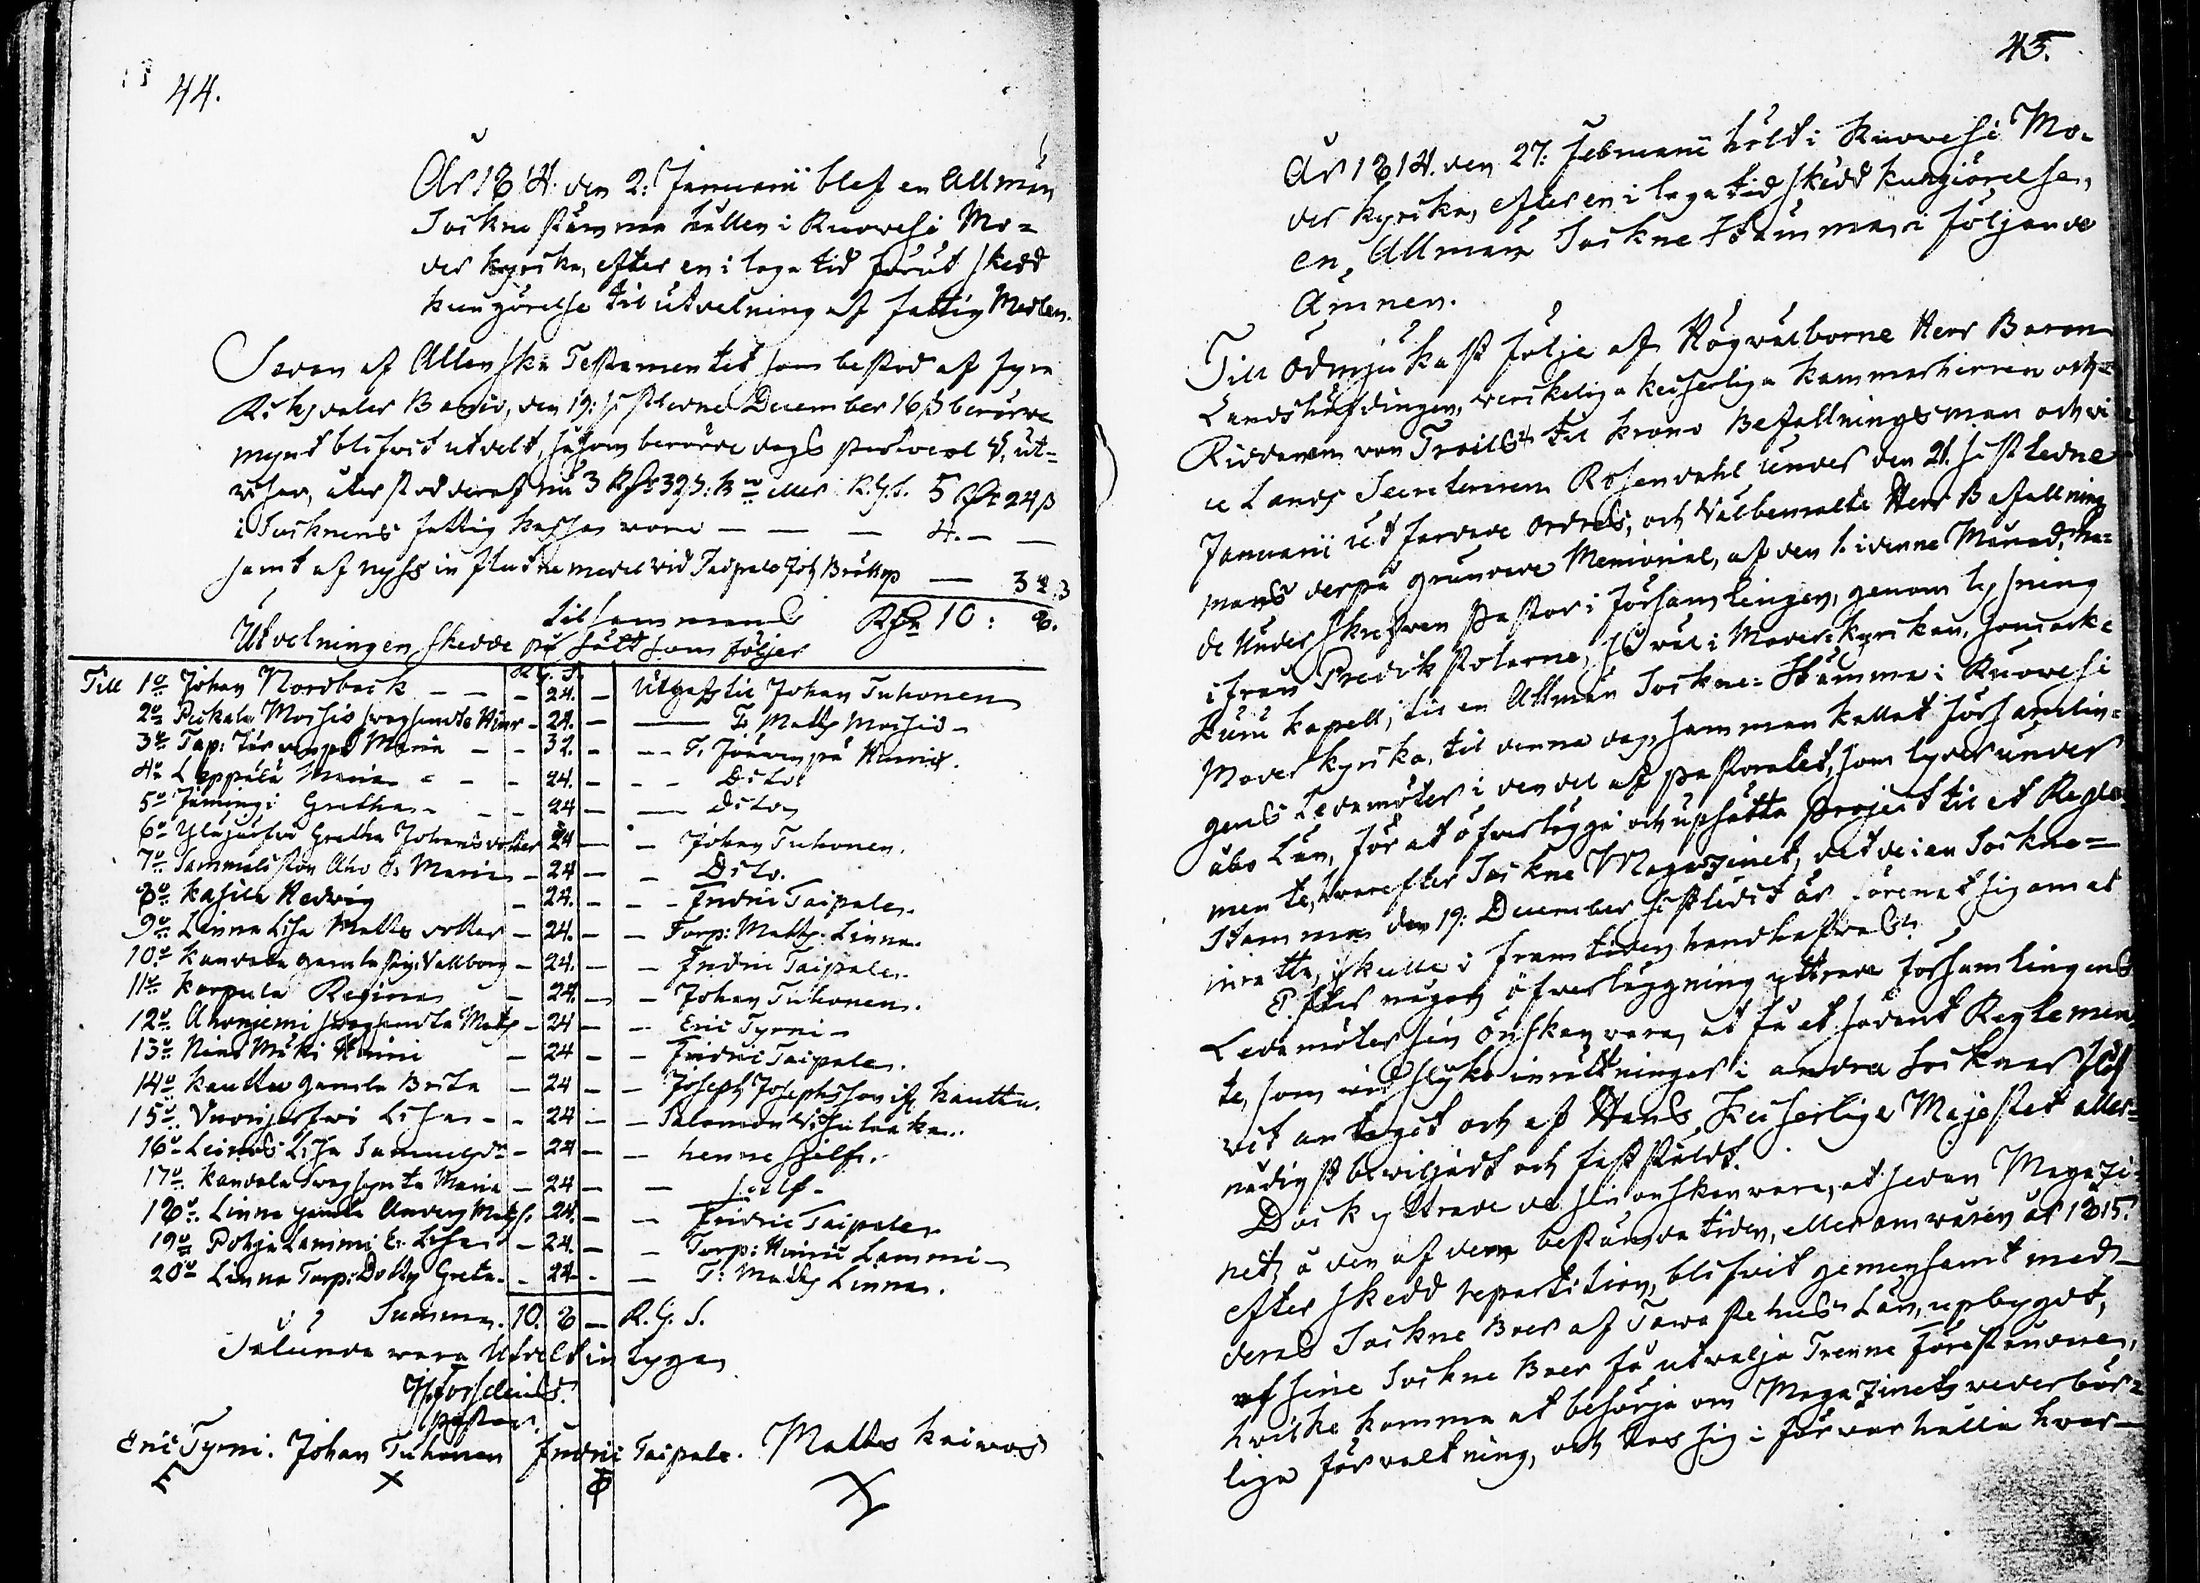 44.
År 1814. den 2: Januarii blef en Allmän
Sockne stämma hållen i Ruovesi Mo=
der kyrka, efter en i laga tid förut skedd
kungörelse til utdelning af fattig Medlen.
Sedan af Allenska Testamentet som bestod af fyra
Riksdaler Banco, den 19: sistledne December 16 ß berörde
mynt blifvit utdelt, såsom berörde dags protocol ut=
viser, återstod deraf nu 3 Rdr 32 ß: Bco eller R.G.S. 5 Rdr 24 ß
i Socknens fattig kassa voro — — — 4. — —
samt af nyss in flutne medel vid Taipale Joh — 32 ß
tilsammans Rdr 10: 8.
Utdelningen skedde på sätt som följer
R.G.S.
Till 1o Johan Nordback — — 24. — Utgafs til Johan Tuhonen
2o Pukala Morsio swagsinte Hinr — 24. — — T. Matts Morsio —
3o Tap: Järvenpä Maria — — 32. — — T. Järvenpä Hinric.
4o Leppälä Maria — — 24. — — Dito.
5o Jämingi Gretha — — 24 — — Dito
6o Ylajärfvi Gretha Johans dotter 24 — — Johan Tuhonen.
7o Sammaliston Aho E: Maria — 24 — — Dito.
8o Kasila Hedvig — 24. — — Fredric Taipale.
9o Linna Lisa Matts dotter — 24. — — Torp: Matts Linna.
10o Kandala gamla Vallborg — 24. — — Fredric Taipale.
11o Karpula Regina — 24. — — Johan Tuhonen.
12o Ahonjemi swagsinta Matts — 24 — — Eric Tyrni —
13o Mäki Hinric — 24 — — Fredric Taipale.
14o Kautu gamla Brita — 24 — — Joseph Josephsson if: Kauttu.
15o Vuorijerfwi Lisa — 24 — — Salomon
16o Leinos Lisa Samuelsdr — 24 — — henne sjelf.
17o Kandala Swagsynta Maria — 24 — — sielf —
18o Linna gamla Anders Mats. 24. — — Fredric Taipale
19o Pohja Lammi E. Lisa — 24. — — Torp: Hinric Lammi —
20o Linna Torp: Dotter Greta — 24 — — T: Matts Linna.
Summa. 10. 8 — R.G.S.
Sålunda wara Utdelt intyga
Forselius.
Pastor.
Eric Tyrni. Johan Tuhonen Fredric Taipale. Mattes Kaiwos
45.
År 1814. den 27: Februarii hölts i Ruovesi Mo=
der kyrka, efter en i laga tid skedd kungiörelse,
en Allmän Sockne Stämma, i följande
Ämnen.
Till ödmjukast följe af Högvälborne Herr Baron
Landshöfdingen, verkelige keiserlige kammarherren och
Riddaren von Troils til Krono Befallningsman och vi=
ce Lands Secreteraren Rosendahl under den 21. sistledne
Januarii utfärdade ordres, och Välbemälte Herr Befallnings
mans derpå grundade Memorial, af den 1. i denne Månad, ha=
de Underskrefven Pastor i Församlingen, genom lysning
ifrån Predikstolarne, så väl i Moderkyrkan, som ock i
Kuru kapell, til en Allmän Sockne-Stämma i Ruovesi
Moderkyrka, til denna dag, samman kallat församlin=
gens Ledamöter i den del af Pastoratet, som lyder under
Åbo Län, för at öfverlägga och upsätta project til et Regle=
mente, hvarefter Sockne Magazinet, det de i en Sockne=
Stämma den 19: December sistledit år förenat sig om at
inrätta, skulle i framtiden handhafvas.
Efter någon öfverläggning yttrade församlingens
Ledamöter sin önskan vara, at få et sådant Reglemen
te, som vid slyka inrättningar i andra Socknar blif
vit antagit och af Hans Keiserliga Majestet aller=
nådigst bewiljadt och fastställdt.
Dock yttrade de sin önskan vara, at sedan Magazi=
net, å den af dem bestämda tiden, eller om wåren år 1815.
efter skedd repartition, blifvit gemensamt med
deras Sockne Boer af Tavastehus Län, upbygdt,
af sine Sockne Boer få utvälja Trenne Föreståndare,
hvilke komma at besörja om Magazinets vederbör=
liga förvaltning, och tas sig i förvar hålla hvar=